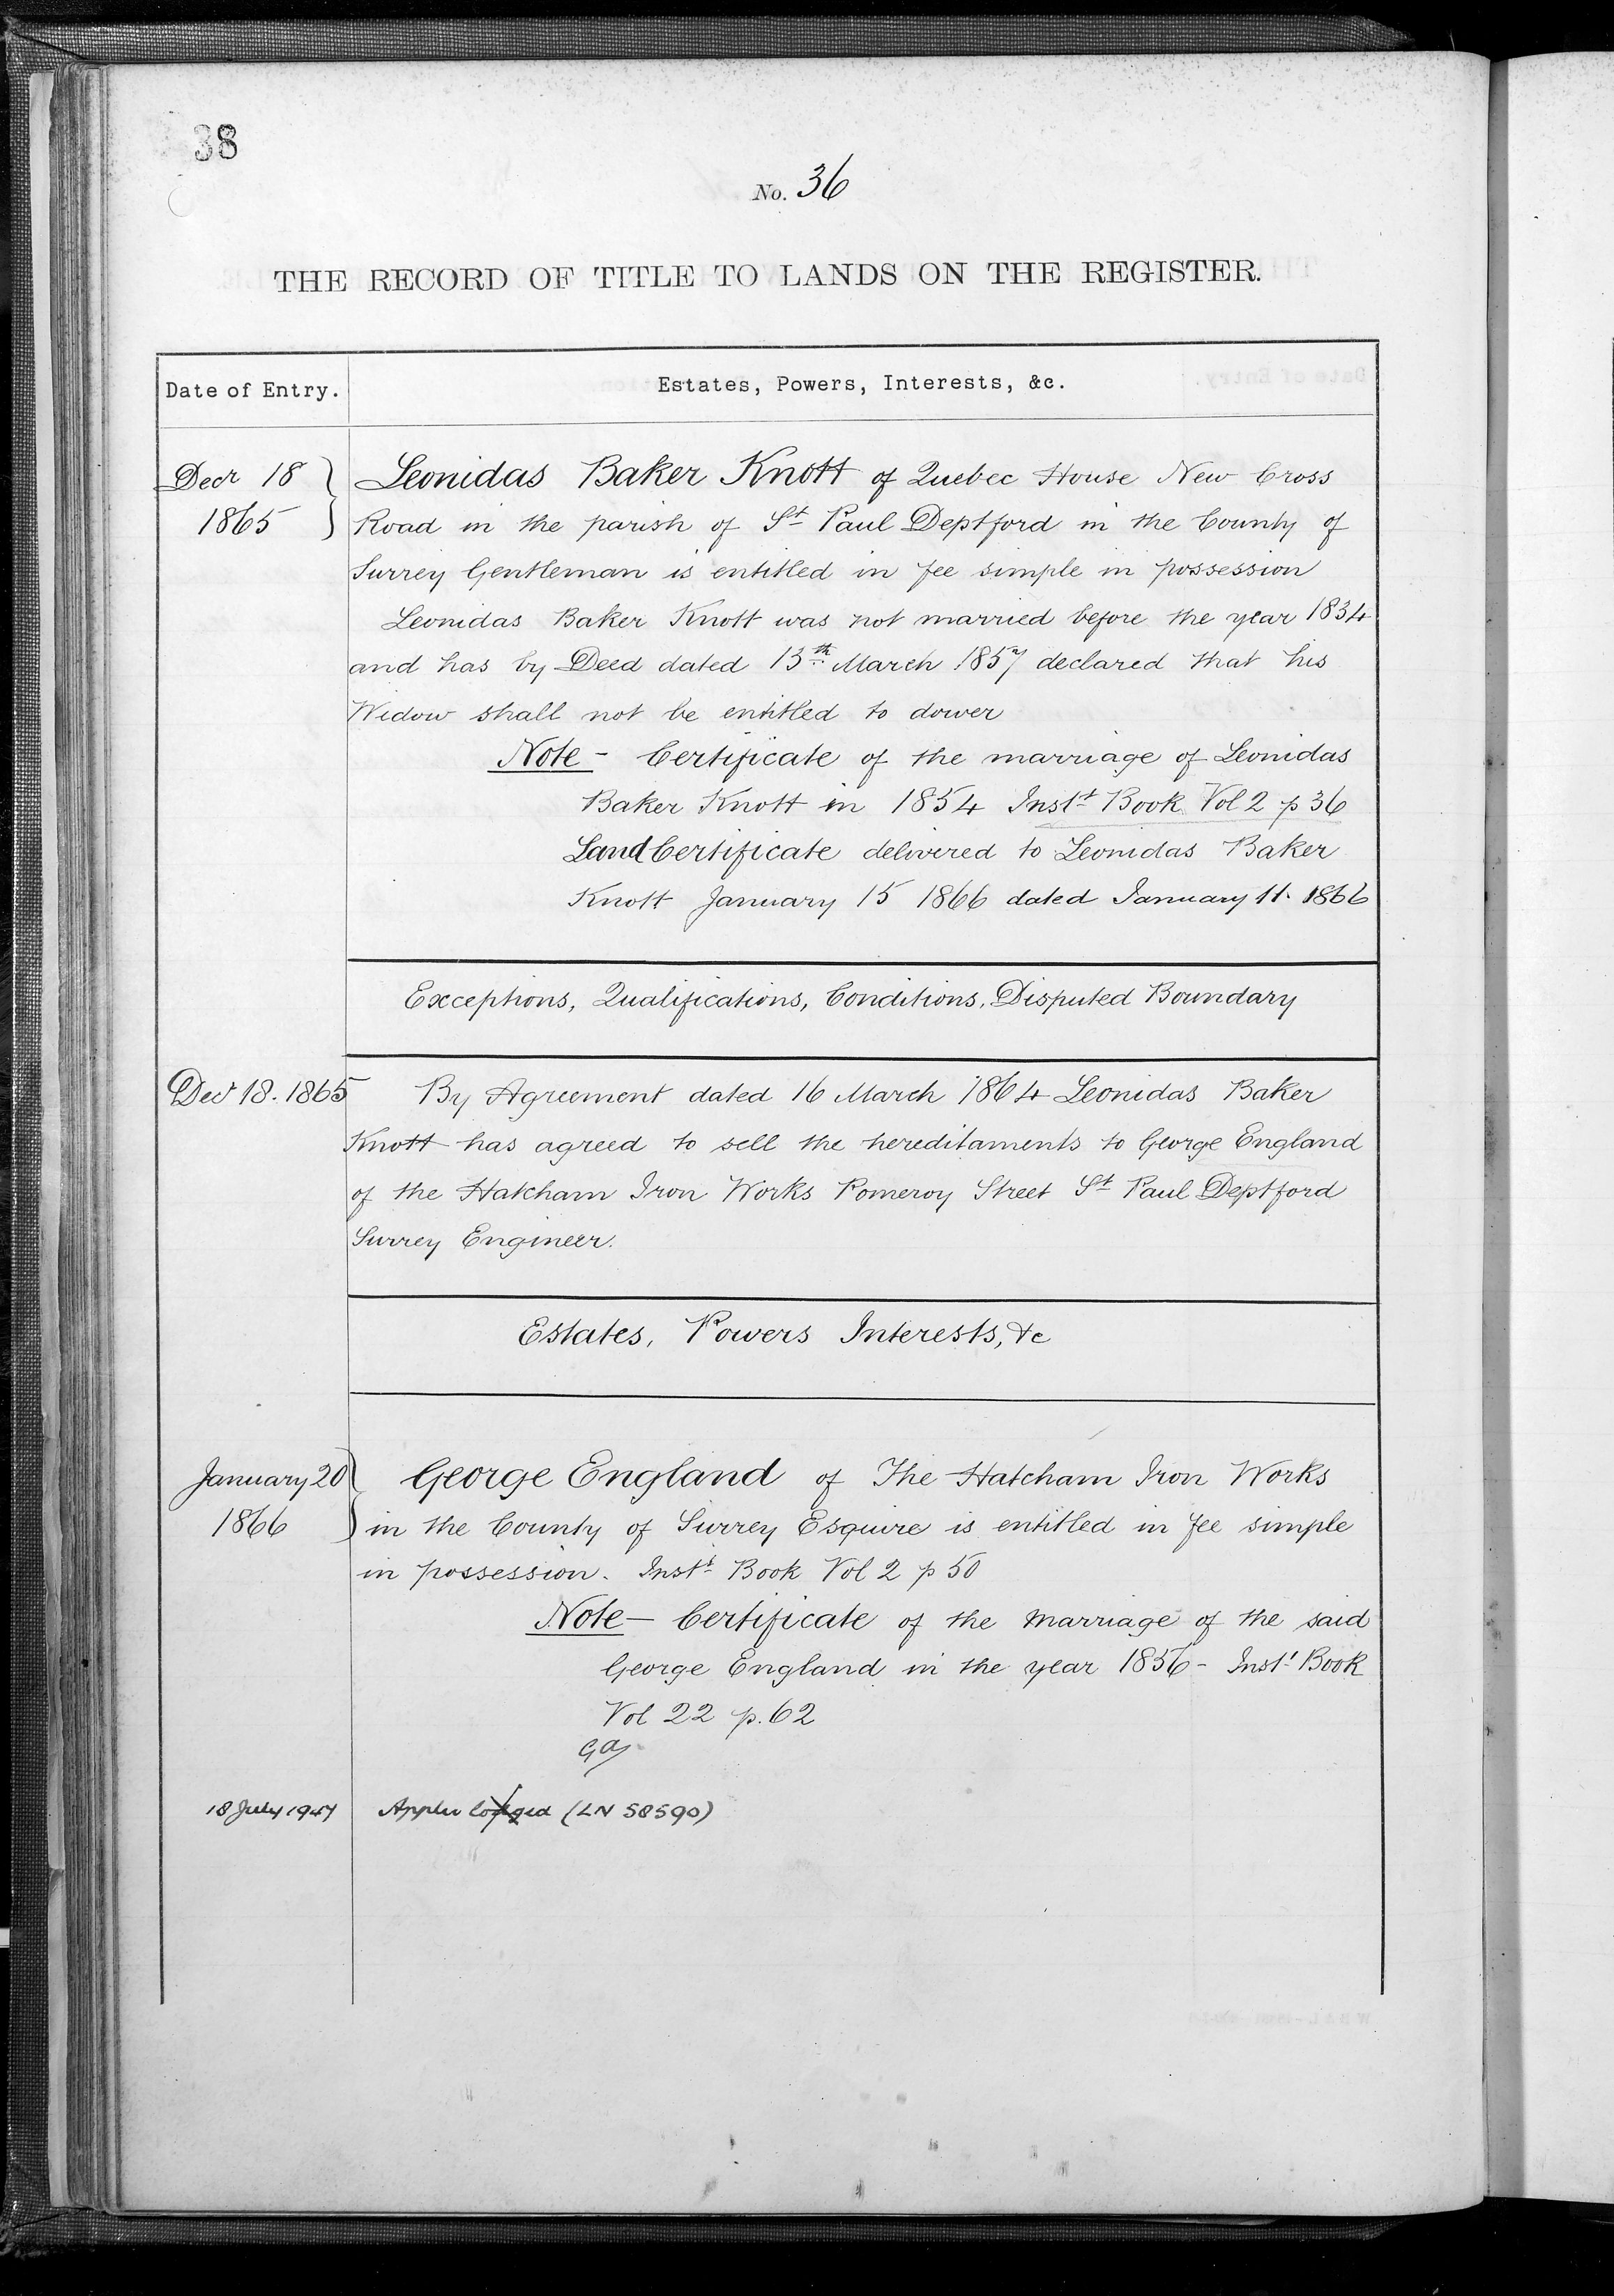 38
No. 36
THE RECORD OF TITLE TO LANDS ON THE REGISTER.
Date of Entry.
Estates, Powers, Interests, &c.
Decr 18
1865
Leonidas Baker Knott of Quebec House New Cross
Road in the parish of St Paul Deptford in the County of
Surrey Gentleman is entitled in fee simple in possession
Leonidas Baker Knott was not married before the year 1834
and has by Deed dated 13th March 1857 declared that his
Widow shall not be entitled to dower
Note - Certificate of the marriage of Leonidas
Baker Knott in 1854 Inst.t Book Vol 2 p 36
Land Certificate delivered to Leonidas Baker
Knott January 15 1866 dated January 11. 1866
Exceptions, Qualifications, Conditions, Disputed Boundary
Decr 18. 1865
By Agreement dated 16 March 1864 Leonidas Baker
Knott has agreed to sell the hereditaments to George England
of the Hatcham Iron Works Pomeroy Street St Paul Deptford
Surrey Engineer.
Estates, Powers Interests, &c
January 20
1866
George England of The Hatcham Iron Works
in the County of Surrey Esquire is entitled in fee simple
in possession. Inst.t Book Vol 2 p 50
Note - Certificate of the Marriage of the said
George England in the year 1856 - Inst.t Book
Vol 22 p. 62
18 July 1947
lodged (LN 58590)